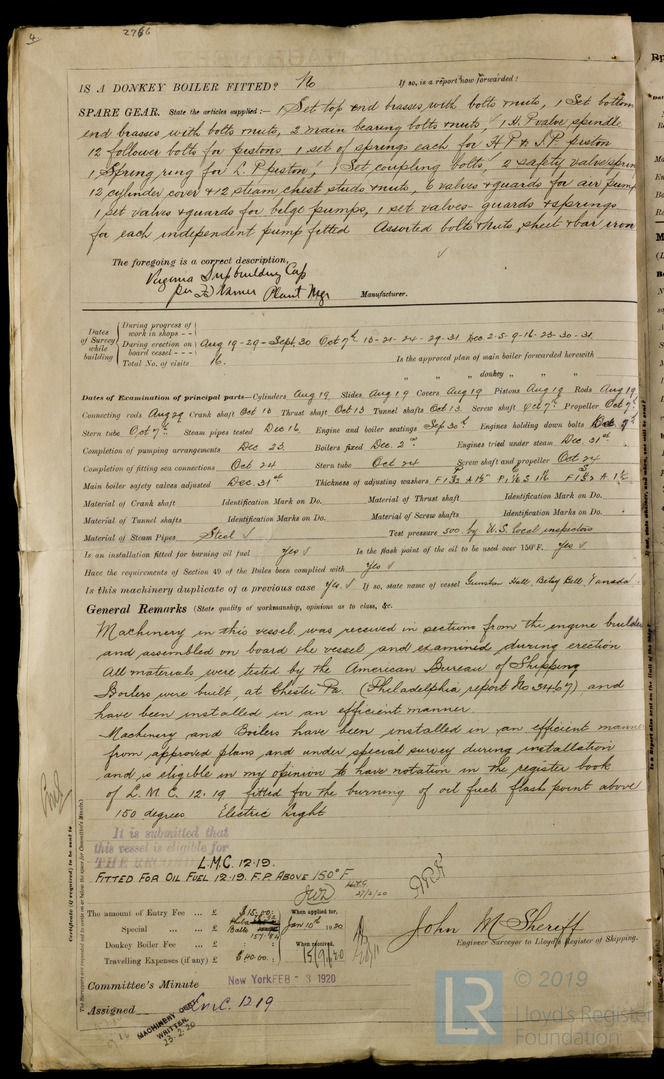 4.
2766
IS A DONKEY BOILER FITTED? No If so, is a report now forwarded?
SPARE GEAR. State the articles supplied:— 1 Set top end brasses with bolts & nuts, 1 Set bottom
end brasses with bolts & nuts, 2 main bearing bolts & nuts, 1 H.P. valve spindle
12 follower bolts for pistons 1 set of springs each for H P & I.P. piston
1 Spring ring for L. P piston, 1 Set coupling bolts, 2 safety valve sprin
12 cylinder cover & 12 steam chest studs & nuts, 6 valves & guards for air pump
1 set valves & guards for belge pumps, 1 set valves - guards & springs
for each independent pump fitted Assorted bolts & nuts, sheet & bar iron
The foregoing is a correct description,
Virginia Shipbuilding Cop
per Plant Mgr Manufacturer.
Dates of Survey while building
During progress of work in shops - -
During erection on board vessel - - -
Aug 19-29-Sept. 30 Oct 7th 10-21-24-29-31 Dec 2-5-9-16-23-30-31
Total No. of visits 16. Is the approved plan of main boiler forwarded herewith
" " " donkey " " "
Dates of Examination of principal parts—Cylinders Aug 19 Slides Aug 19 Covers Aug 19 Pistons Aug 19 Rods Aug 19
Connecting rods Aug 29 Crank shaft Oct 10 Thrust shaft Oct 13 Tunnel shafts Oct 13 Screw shaft Oct 7th Propeller Oct 7th
Stern tube Oct 7th Steam pipes tested Dec 16 Engine and boiler seatings Sep 30th Engines holding down bolts Dec 9th
Completion of pumping arrangements Dec 23 Boilers fixed Dec 2nd Engines tried under steam Dec 31st
Completion of fitting sea connections Oct 24 Stern tube Oct 24 Screw shaft and propeller Oct 24
Main boiler safety valves adjusted Dec 31st Thickness of adjusting washers
Material of Crank shaft Identification Mark on Do. Material of Thrust shaft Identification Mark on Do.
Material of Tunnel shafts Identification Marks on Do. Material of Screw shafts Identification Marks on Do.
Material of Steam Pipes Steel ✓ Test pressure 500 by U.S. local inspectors
Is an installation fitted for burning oil fuel Yes ✓ Is the flash point of the oil to be used over 150°F. Yes ✓
Have the requirements of Section 49 of the Rules been complied with Yes ✓
Is this machinery duplicate of a previous case Yes. ✓ If so, state name of vessel Gunston Hall Betsy Bell, Vansada
General Remarks (State quality of workmanship, opinions as to class, &c.
Machinery in this vessel was received in sections from the engine builder
and assembled on board the vessel and examined during erection
All materials were tested by the American Bureau of Shipping
Boilers were built at Chester Pa. (Philadelphia report No 3467) and
have been installed in an efficient manner.
Machinery and Boilers have been installed in an efficient manner
from approved plans and under special survey during installation
and is eligible in my opinion to have notation in the register book
of L.M.C. 12.19 fitted for the burning of oil fuel flash point above
150 degrees Electric Light
It is submitted that
this vessel is eligible for
THE RECORD L.M.C. 12.19.
FITTED FOR OIL FUEL 12.19. F.P. ABOVE 150°F.
27/2/20
The amount of Entry Fee ... £ $15.00: When applied for,
Special ... £ Balto Jan 10th 1920
Donkey Boiler Fee ... £ : : When received,
Travelling Expenses (if any) £ $40.00 :
John McSheriff
Engineer Surveyor to Lloyd's Register of Shipping.
Committee's Minute New York FEB - 3 1920
Assigned L.M.C. 12.19
MACHINERY CERT.
WRITTEN.
23.2.20
Certificate (if required) to be sent to
The Surveyors are requested not to write on or below the space for Committee's Minute.
LR
© 2019
Lloyd's Register
Foundation